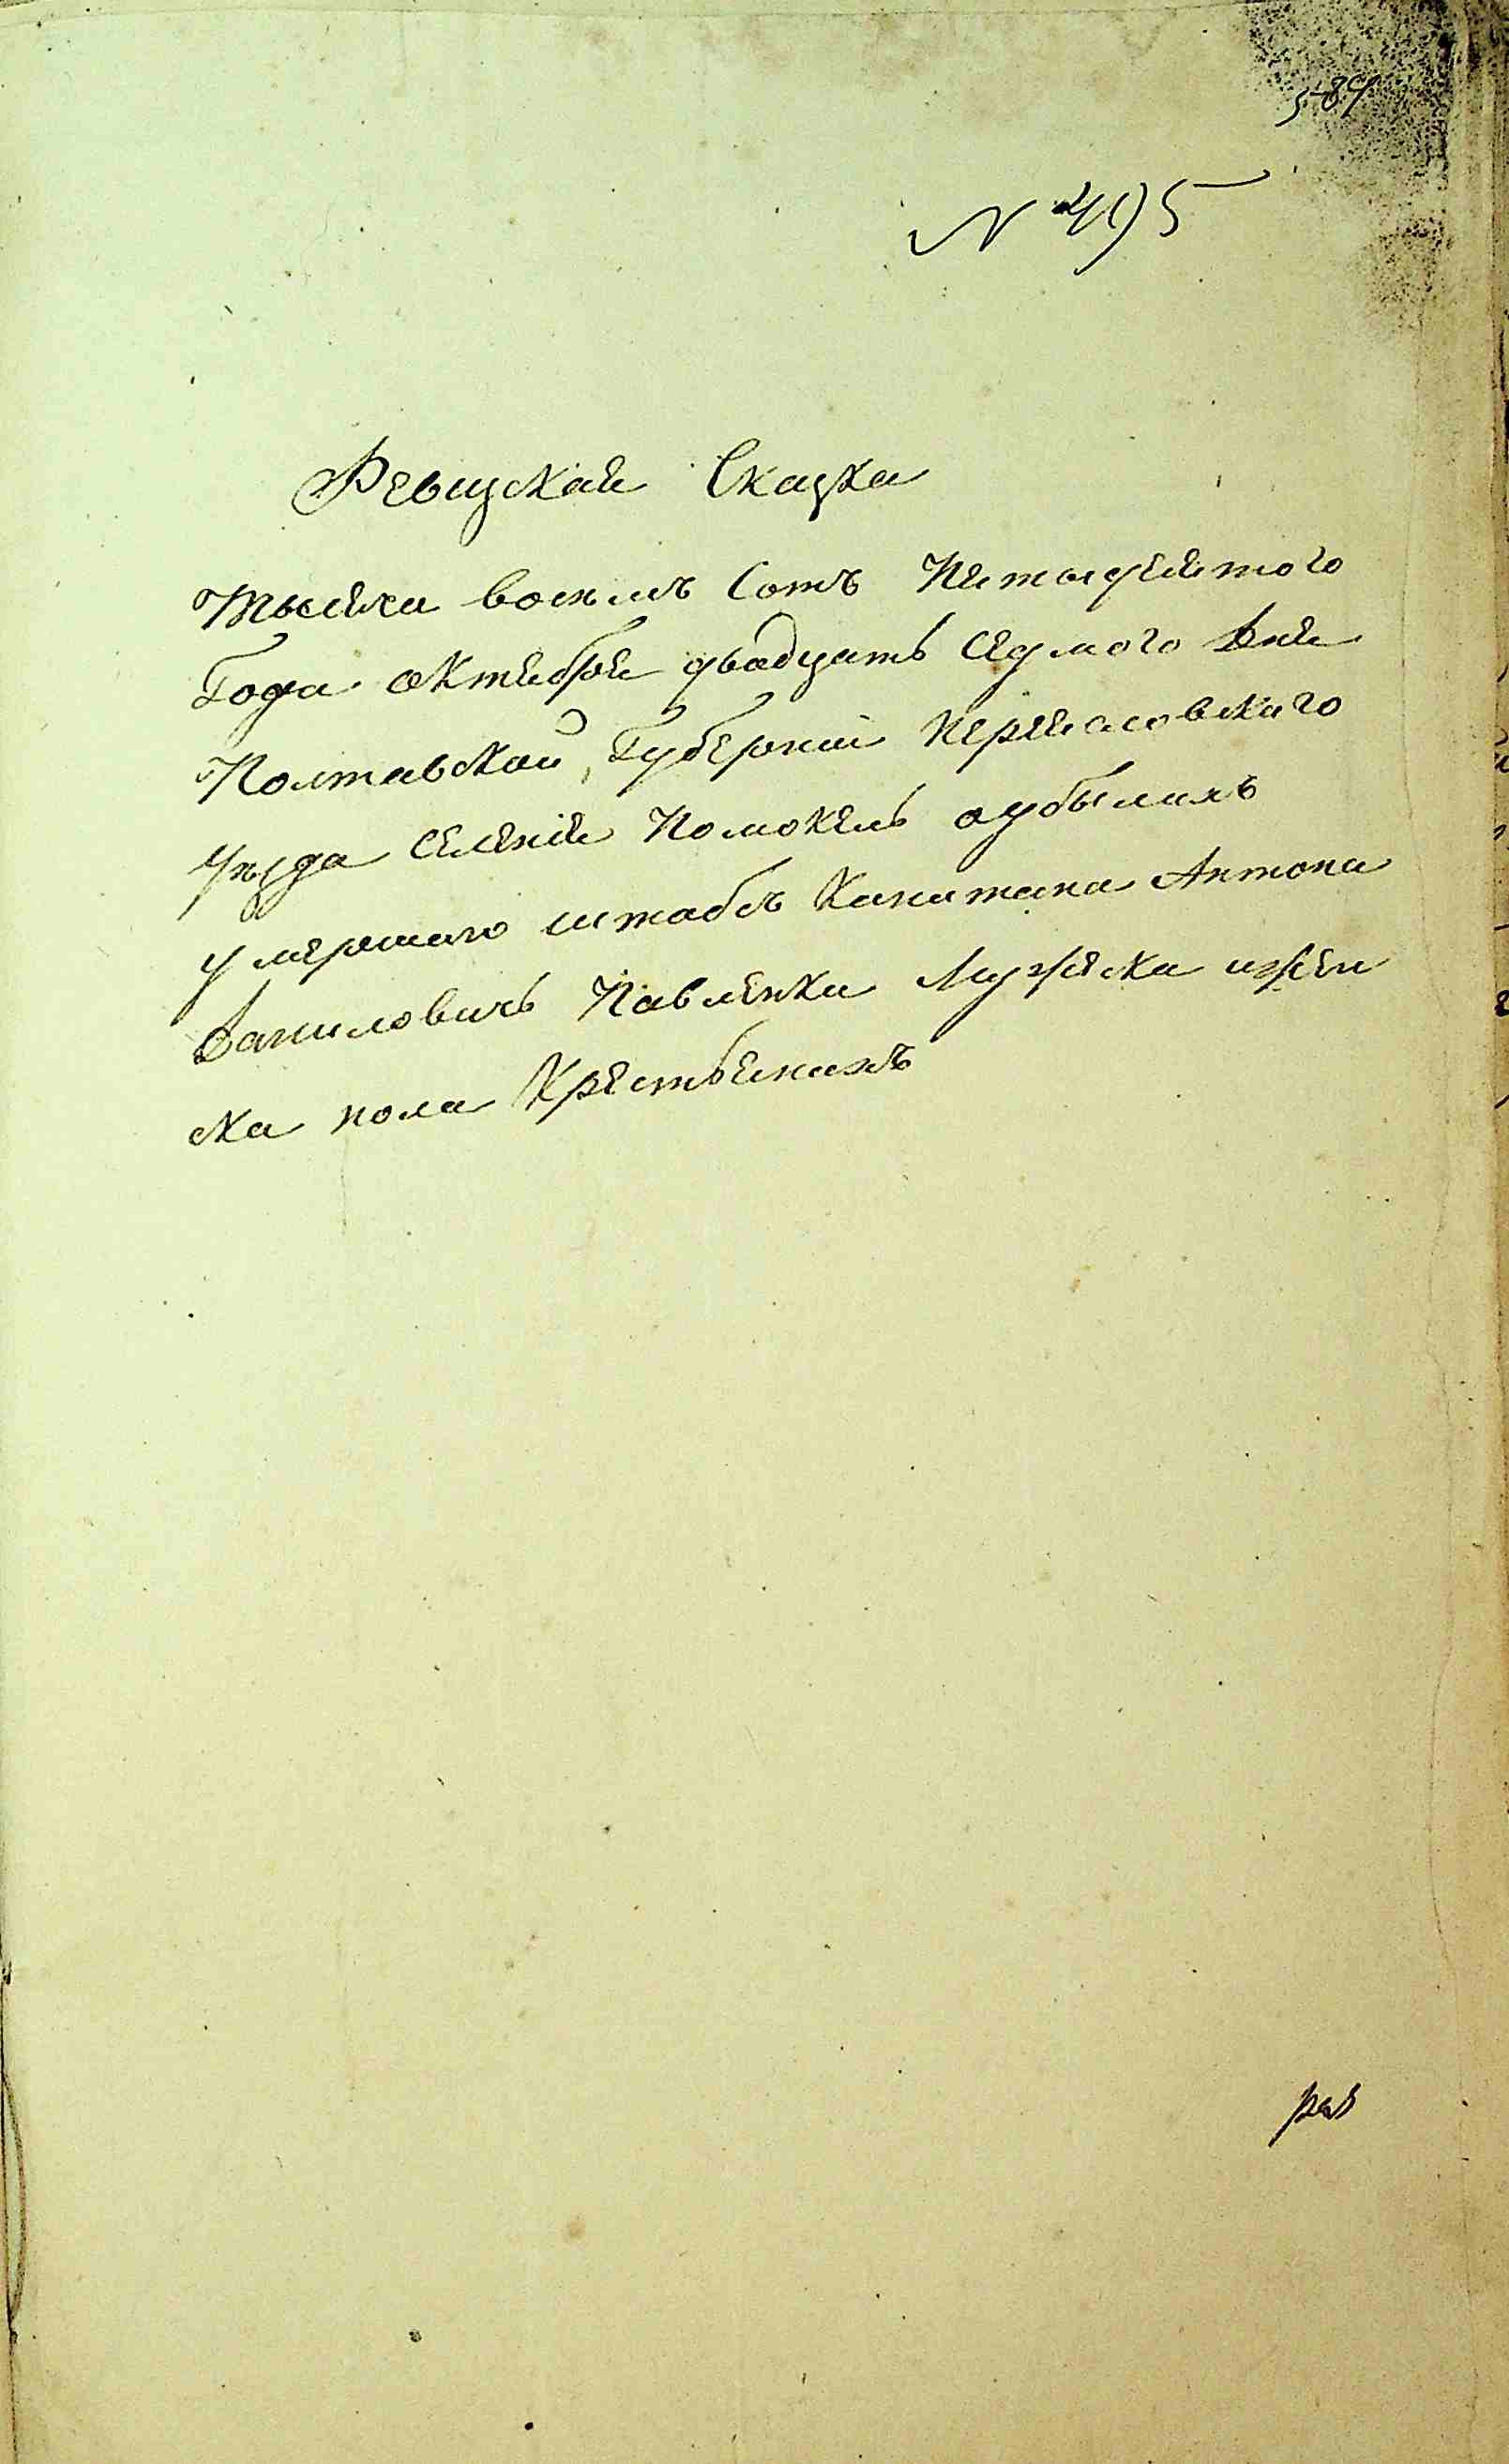 584
N 495
Ревизская Сказка
Тысяча восемъ Сотъ Пятыдеятого
Года октября двадцать Седмого дня
Полтавской Губерний Переясловского
Уезда Селения Помокель
умершаго штабсъ Капитана Антона
Даниловичь Павленка Мужеска ижен
ска пола Крестьянахъ